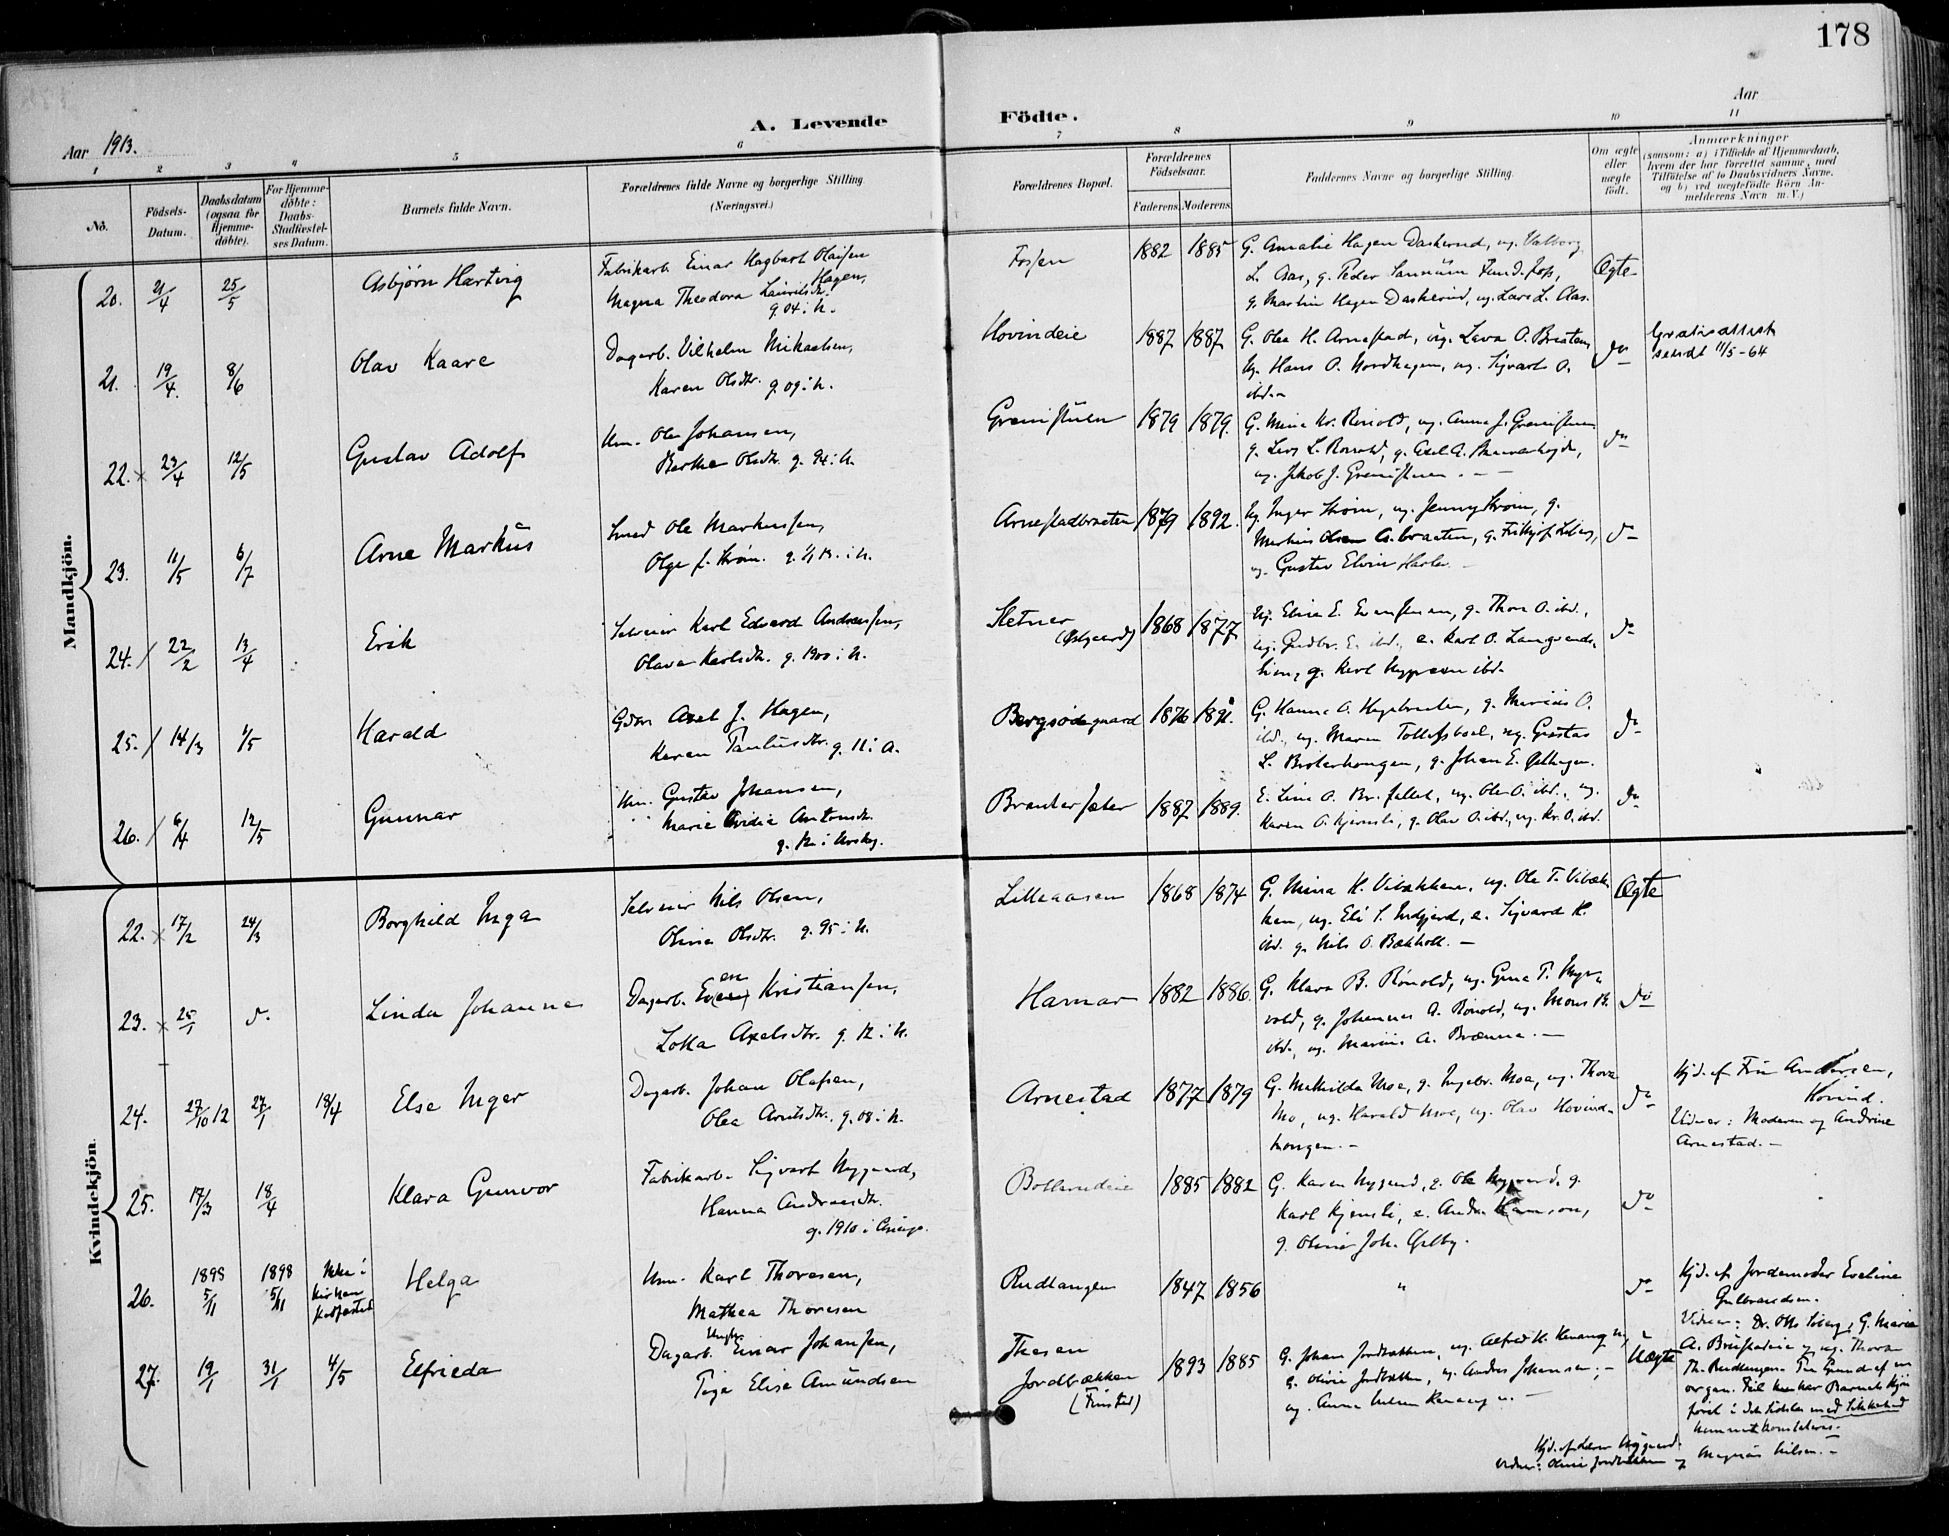 178
Aar 1913.
A. Levende Födte.
Aar
1 2 3 4 5 6 7 8 9 10 11
No.
Födsels-Datum.
Daabsdatum (ogsaa for Hjemme-döbte).
For Hjemme-döbte: Daabs-Stadfæstel-ses Datum.
Barnets fulde Navn.
Forældrenes fulde Navne og borgerlige Stilling.
(Næringsvei.)
Forældrenes Bopæl.
Forældrenes Födselsaar.
Faderens. Moderens.
Faddernes Navne og borgerlige Stilling.
Om ægte eller uægte födt.
Anmærkninger
(saasom: a) i Tilfælde af Hjemmedaab,
hvem der har forrettet samme, med
Tilföielse af to Daabsvidners Navne,
og b) ved uægtefödte Börn An-
melderens Navn m. V.)
Mandkjön.
20. 21/4 25/5 Asbjörn Hartvig
Fabrikarb. Einar Hagbart Olausen Hagen,
Magna Theodora Lauritsdtr.
g. 04 i N.
Fossen 1882 1885
G. Amalie Hagen Daskerud, ug. Valborg
L. Aas, g. Peder Sannum
g. Martin Hagen Daskerud, ug. Lars L. Aas.
Ægte
21. 19/4 8/6 Olav Kaare
Dagarb. Vilhelm Mikaelsen,
Karen Olsdtr. g. 09 i N.
Hovindeie 1887 1887
G. Olea H. Arnestad, ug. Lava O.
ug. Hans O. Nordhagen, ug. Sigvart O.
ibd.
do
Gratisattest
sendt 11/5-64
22. x 23/4 12/5 Gustav Adolf
Um. Ole Johansen,
Berthe Olsdtr. g. 94 i N.
Grenistuen 1879 1879.
G. Mina Kr. Rönold, ug. Anna J. Grenistuen
g. Lars L. Rönold, g. Axel A.
ug. Jakob J. Grenistuen.
do
23. 11/5 6/7 Arne Markus
Smed Ole Markussen,
Olga f. Ström.
Arnestadbraaten 1879 1892.
Ug. Inger Ström, ug. Jenny Ström, g.
Martin Olsen A.braaten, g. Fritjof
ug. Gustav Elvin
do
24. / 22/2 13/4 Erik
Selveier Karl Edvard Andreassen,
Olava Karlsdtr. g. 1900 i N.
Sletner
(Östgaard) 1868 1877
Ug. Elise E. g. Thora O. ibd.,
ug. Gudbr. E. ibd., e. Karl O.
g. Karl ibd.
do
25. / 14/3 1/5 Harald
Gdbr. Axel J. Hagen,
Karen Paulusdtr. g. 11 i A.
Bergsödegaard 1876
G. Hanna O. g. Marius O.
ibd., ug. Maren Tollefsböl, ug. Gustav
L. g. Johan E.
do
26. / 6/4 12/5 Gunnar
Um. Gustav Johansen,
Marie Antonsdtr.
g. 12 i Aurskog.
1887 1889.
E. Lina O. ug. Ole O. ibd., ug.
Karen O. Kjernsli, g. Olav O. ibd., ug. Kr. O. ibd.
do
Kvindekjön.
22. x 17/2 24/3 Borghild Inga
Selveier Nils Olsen,
Olina Olsdtr. g. 95 i N.
Lilleaasen 1868 1874
G. Mina K. Vibækken, ug. Ole T. Vibæk-
ken, ug. Eli S. e. Sigvard K.
ibd. g. Nils O. Bækholt.
Ægte
23. x 25/1 do. Linda Johanna
Dagarb. Even Kristiansen,
Lotta Axelsdtr. g. 12 i N.
Hamar 1882 1886.
G. Klara B. Rönold, ug. Gina T.
vold, g. Johannes A. Rönold, ug. Mons B.
ibd., ug. Marius A. Brænna.
do
24. 27/10 12 27/1 18/4 Else Inger
Dagarb. Johan Olafsen,
Olea Arntsdtr. g. 08 i N.
Arnestad 1877 1879
G. Mathilda Moe, g. Ingebr. Moe, ug. Thora
Mo, ug. Harald Moe, ug. Olav Hovind-
haugen.
do
Hjd. af Fru Andersen,
Hovind.
Vidner: Moderen og Andrine
Arnestad.
25. 17/3 18/4 Klara Gunvor
Fabrikarb. Sigvart Nygaard,
Hanna Andreasdtr.
g. 1910 i
Bollerudeie 1885 1882
G. Karen Nygaard, g. Ole Nygaard, g.
Karl Kjernsli, e.
g. Olivia Joh.
do
26. 1898 5/11 1898 5/11 Ikke i
Kirken
stadfæstet
Helga
Um. Karl Thoresen,
Mathea Thoresen
Rudlangen 1847 1856
"
do
Hjd. af Jordemoder Eveline
Gulbrandsen.
Vidner: Dr. Otto G. Marie
A. og ug. Thora
Th. Rudlangen. Paa Grund af en
organ. Feil kunde Barnets Kjön
först i den sidste med Sikkerhed
konstateres.
27. 19/1 31/1 4/5 Elfrieda
Dagarb. Ungk. Einar Johansen,
Pige Elise Amundsen
Thesen
Jordbækken
(Finstad) 1893 1885
G. Johan Jordbækken, ug. Alfred H.
G. Olivia Jordbækken, ug. Anders Johansen,
ug. Anna
Uægte
Hjd. af Lærer Nygaard.
Vidner: Olivia Jordbækken og Magnus Nilsen.